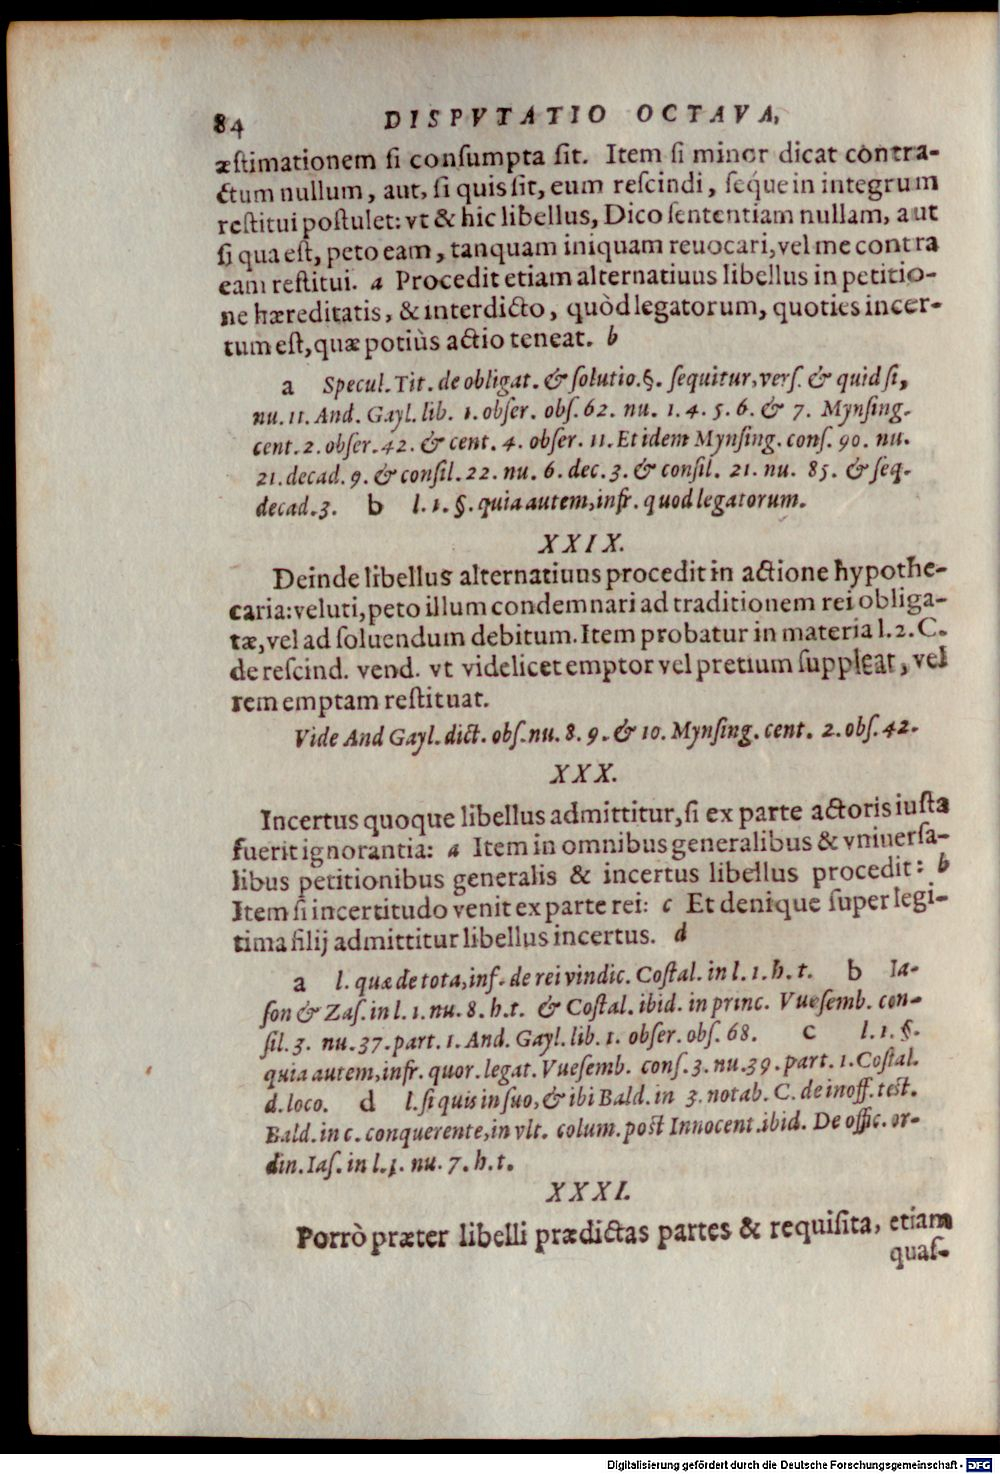 84 DISPVTATIO OCTAVA,
æstimationem si consumpta sit. Item si minor dicat contra-
ctum nullum, aut, si quis sit, eum rescindi, seque in integrum
restitui postulet: vt & hic libellus, Dico sententiam nullam, aut
si qua est, peto eam, tanquam iniquam reuocari, vel me contra
eam restitui. a Procedit etiam alternatiuus libellus in petitio-
ne hæreditatis, & interdicto, quòd legatorum, quoties incer-
tum est, quæ potiùs actio teneat. b
a Specul. Tit. de obligat. & solutio. §. sequitur, vers. & quid si,
nu. 11. And. Gayl. lib. 1. obser. obs. 62. nu. 1. 4. 5. 6. & 7. Mynsing.
cent. 2. obser. 42. & cent. 4. obser. 11. Et idem Mynsing. cons. 90. nu.
21. decad. 9. & consil. 22. nu. 6. dec. 3. & consil. 21. nu. 85. & seq.
decad. 3. b l. 1. §. quia autem, infr. quod legatorum.
XXIX.
Deinde libellus alternatiuus procedit in actione hypothe-
caria: veluti, peto illum condemnari ad traditionem rei obliga-
tæ, vel ad soluendum debitum. Item probatur in materia l. 2. C.
de rescind. vend. vt videlicet emptor vel pretium suppleat, vel
rem emptam restituat.
Vide And Gayl. dict. obs. nu. 8. 9. & 10. Mynsing. cent. 2. obs. 42.
XXX.
Incertus quoque libellus admittitur, si ex parte actoris iusta
fuerit ignorantia: a Item in omnibus generalibus & vniuersa-
libus petitionibus generalis & incertus libellus procedit: b
Item si incertitudo venit ex parte rei: c Et denique super legi-
tima filij admittitur libellus incertus. d
a l. quæ de tota, inf. de rei vindic. Costal. in l. 1. h. t. b Ia-
son & Zas. in l. 1. nu. 8. h. t. & Costal. ibid. in princ. Vuesemb. con-
sil. 3. nu. 37. part. 1. And. Gayl. lib. 1. obser. obs. 68. c l. 1. §.
quia autem, infr. quor. legat. Vuesemb. cons. 3. nu. 39. part. 1. Costal.
d. loco. d l. si quis in suo, & ibi Bald. in 3. notab. C. de inoff. test.
Bald. in c. conquerente, in vlt. colum. post Innocent. ibid. De offic. or-
din. Ias. in l. 1. nu. 7. h. t.
XXXI.
Porrò præter libelli prædictas partes & requisita, etiam
quas-
Digitalisierung gefördert durch die Deutsche Forschungsgemeinschaft - DFG